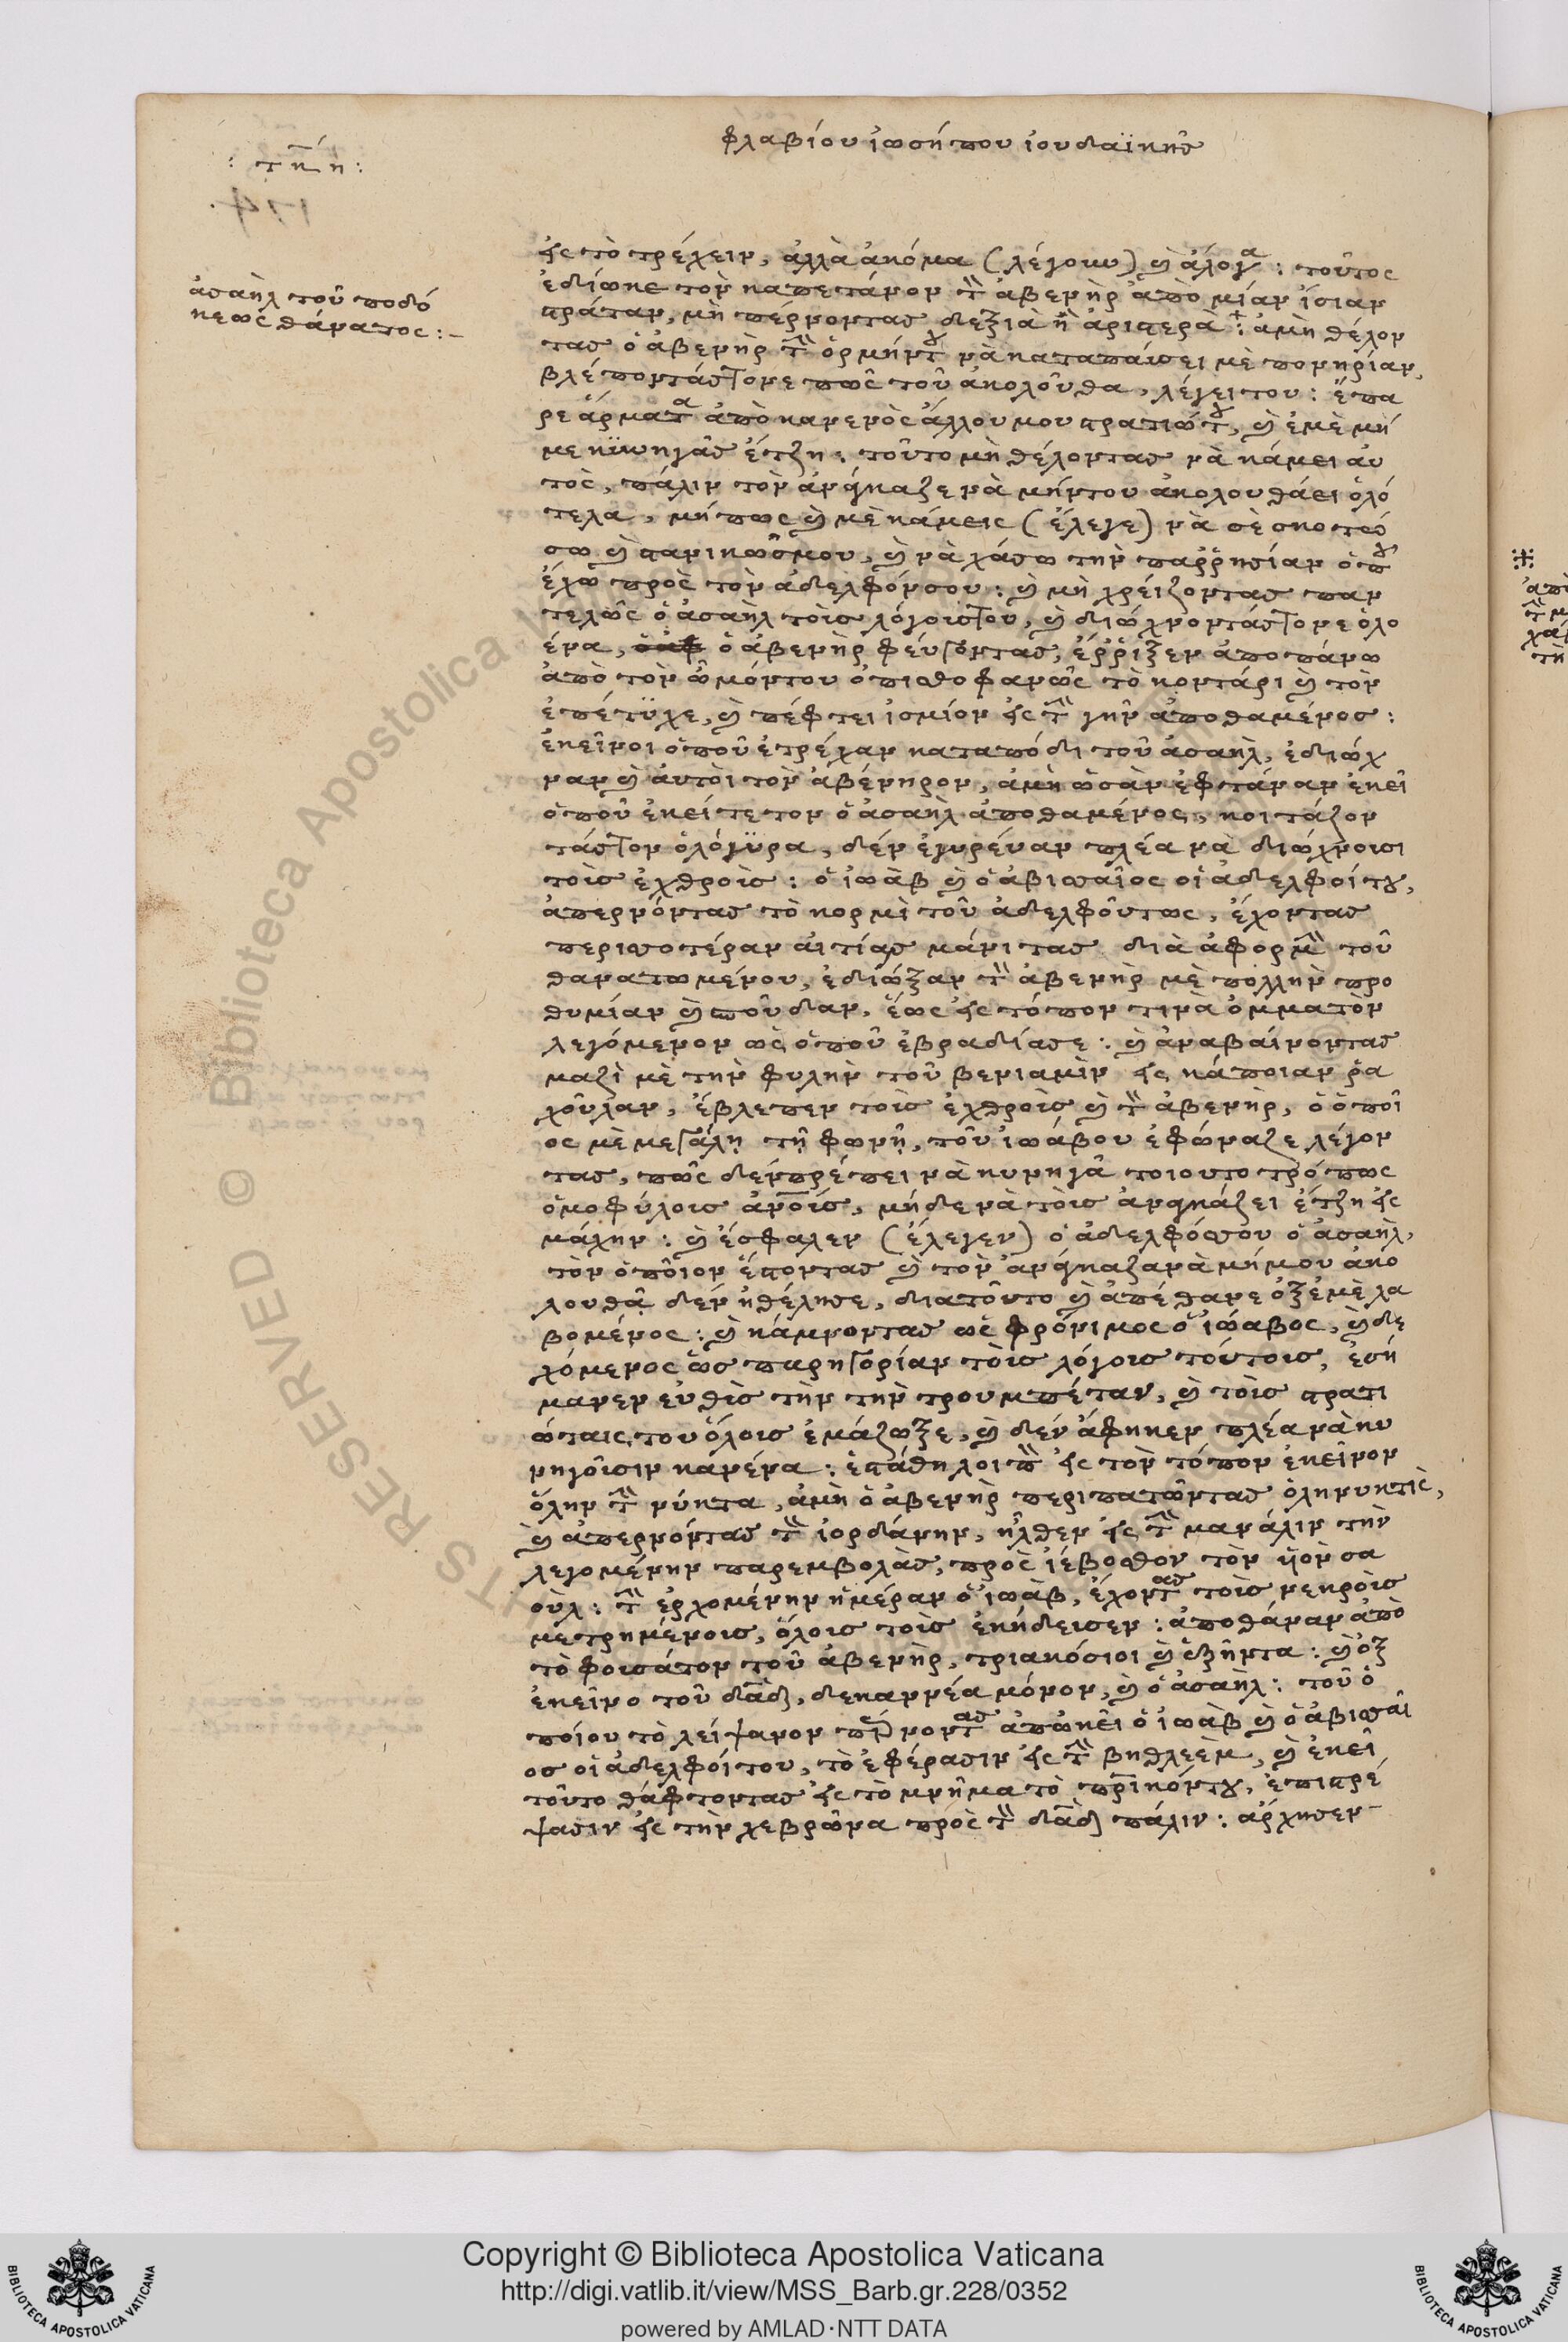 φλαβίου ἰωσήπου ἰουδαϊκῆς
: τῆ η :
ἀσαὴλ τοῦ ποδό
κεως θάνατος :-
εἰς τὸ τρέχειν, ἀλλὰ ἀκόμα (λέγουν) καὶ ἄλογα : τοῦτος
ἐδίωκε τὸν καπετάνον τὸν ἀβενὴρ ἀπὸ μίαν ἴσιαν
στράταν, μὴ πέρνοντας δεξιὰ ἢ ἀριστερὰ : ἀμὴ θέλον
τας ὁ ἀβενὴρ τὴν ὁρμήν του νὰ καταπαύσει μὲ πονηρίαν,
βλέποντάς τονε πῶς τοῦ ἀκολοῦθα, λέγει του : ἔπα
ρε ἅρματα ἀπὸ κανενὸς ἄλλου μου στρατιώτου, καὶ ἐμὲ μή
με κυνηγᾶς ἔτζη : τοῦτο μὴ θέλοντας νὰ κάμει αὐ
τὸς, πάλιν τὸν ἀνάγκαζε νὰ μήν του ἀκολουθάει ὁλό
τελα, μήπως καὶ μὲ κάμεις (ἔλεγε) νὰ σὲ σκοτώ
σω καὶ στανικῶς μου, καὶ νὰ χάσω τὴν παῤῥησίαν ὁποῦ
ἔχω πρὸς τὸν ἀδελφόν σου : καὶ μὴ χρείζοντας παν
τελῶς ὁ ἀσαὴλ τοῖς λόγοις του, καὶ διώχνοντάς τονε ὁλο
ένα, ὁ ἀβενὴρ φεύγοντας, ἔῤῥιξεν ἀποπάνω
ἀπὸ τὸν ὦμόν του ὀπισθοφανῶς τὸ κοντάρι καὶ τὸν
ἐπέτυχε, καὶ πέφτει ἰσμίον εἰς τὴν γῆν ἀποθαμένος :
ἐκεῖνοι ὁποῦ ἐτρέχαν καταπόδι τοῦ ἀσαὴλ, ἐδιώχ
ναν καὶ αὐτοὶ τὸν ἀβένηρον, ἀμὴ ὡσὰν ἐφτάναν ἐκεῖ
ὁποῦ ἐκείτετον ὁ ἀσαὴλ ἀποθαμένος, κοιτάζον
τάς τον ὁλόγυρα, δὲν ἐγυρέναν πλέα νὰ διώχνοισι
τοῖς ἐχθροῖς : ὁ ἰωὰβ καὶ ὁ ἀβισσαῖος οἱ ἀδελφοί του,
ἀπερνόντας τὸ κορμὶ τοῦ ἀδελφοῦ τως, ἔχοντας
περισσοτέραν αἰτίας μάνιτας διὰ ἀφορμὴν τοῦ
θανατωμένου, ἐδιώξαν τὸν ἀβενὴρ μὲ πολλὴν προ
θυμίαν καὶ σπούδαν, ἕως εἰς τόπον τινὰ ὀμματὸν
λεγόμενον ὡς ὁποῦ ἐβραδίασε : καὶ ἀναβαίνοντας
μαζὶ μὲ τὴν φυλὴν τοῦ βενιαμὶν εἰς κάποιαν ῥα
χοῦλαν, ἔβλεπεν τοῖς ἐχθροῖς καὶ τὸν ἀβενὴρ, ὁ ὁποῖ
ος μὲ μεγάλη τῇ φωνῇ, τοῦ ἰωάβου ἐφώναζε λέγον
τας, πῶς δὲν πρέπει νὰ κυνηγᾶ τοιουτοτρόπως
ὁμοφύλοις ἀνοῖς, μήδε νὰ τοῖς ἀναγκάζει ἔτζη εἰς
μάχην : καὶ ἔσφαλεν (ἔλεγεν) ὁ ἀδελφός σου ὁ ἀσαὴλ,
τὸν ὁποῖον ἔστοντας καὶ τὸν ἀνάγκαζα νὰ μή μου ἀκο
λουθᾷ δὲν ἠθέλησε, διατοῦτο καὶ ἀπέθανε ὀξ ἐμὲ λα
βομένος : καὶ κάμνοντας ὡς φρόνιμος ὁ ἰώαβος, καὶ δε
χόμενος ὡς παρηγορίαν τοῖς λόγοις τούτοις, ἐσή
μανεν εὐθὶς τὴν τὴν τρουμπέταν, καὶ τοῖς στρατι
ώταις του ὅλοις ἐμάζωξε, καὶ δὲν ἄφηκεν πλέα νὰ κυ
νηγοῖσιν κανένα : ἐστάθη λοιπὸν εἰς τὸν τόπον ἐκεῖνον
ὅλην τὴν νύκτα, ἀμὴ ὁ ἀβενὴρ περιπατῶντας ὁληνυκτὶς,
καὶ ἀπερνόντας τὸν ἰορδάνην, ἦλθεν εἰς τὴν μανάλιν τὴν
λεγομένην παρεμβολὰς, πρὸς ἰέβοσθον τὸν ὑιὸν σα
οὺλ : τὴν ἐρχομένην ἡμέραν ὁ ἰωὰβ, ἔχοντας τοῖς νεκροῖς
μετρημένοις, ὅλοις τοῖς ἐκήδεισεν : ἀποθάναν ἀπὸ
τὸ φοισάτον τοῦ ἀβενὴρ, τριακόσιοι καὶ ἑξῆντα : καὶ ὀξ
ἐκεῖνο τοῦ δαδ, δεκαννέα μόνον, καὶ ὁ ἀσαὴλ : τοῦ ὁ
ποίου τὸ λείψανον πέρνοντας ἀπῶκεῖ ὁ ἰωὰβ καὶ ὁ ἀβισσαῖ
ος οἱ ἀδελφοί του, τὸ ἐφέρασιν εἰς τὴν βηθλεὲμ, καὶ ἐκεῖ
τοῦτο θάφτοντας εἰς τὸ μνῆμα τὸ πρικόν του, ἐπιστρέ
ψασιν εἰς τὴν χεβρῶνα πρὸς τὸν δαδ πάλιν : ἄρχησεν
Copyright © Biblioteca Apostolica Vaticana
http://digi.vatlib.it/view/MSS_Barb.gr.228/0352
powered by AMLAD·NTT DATA